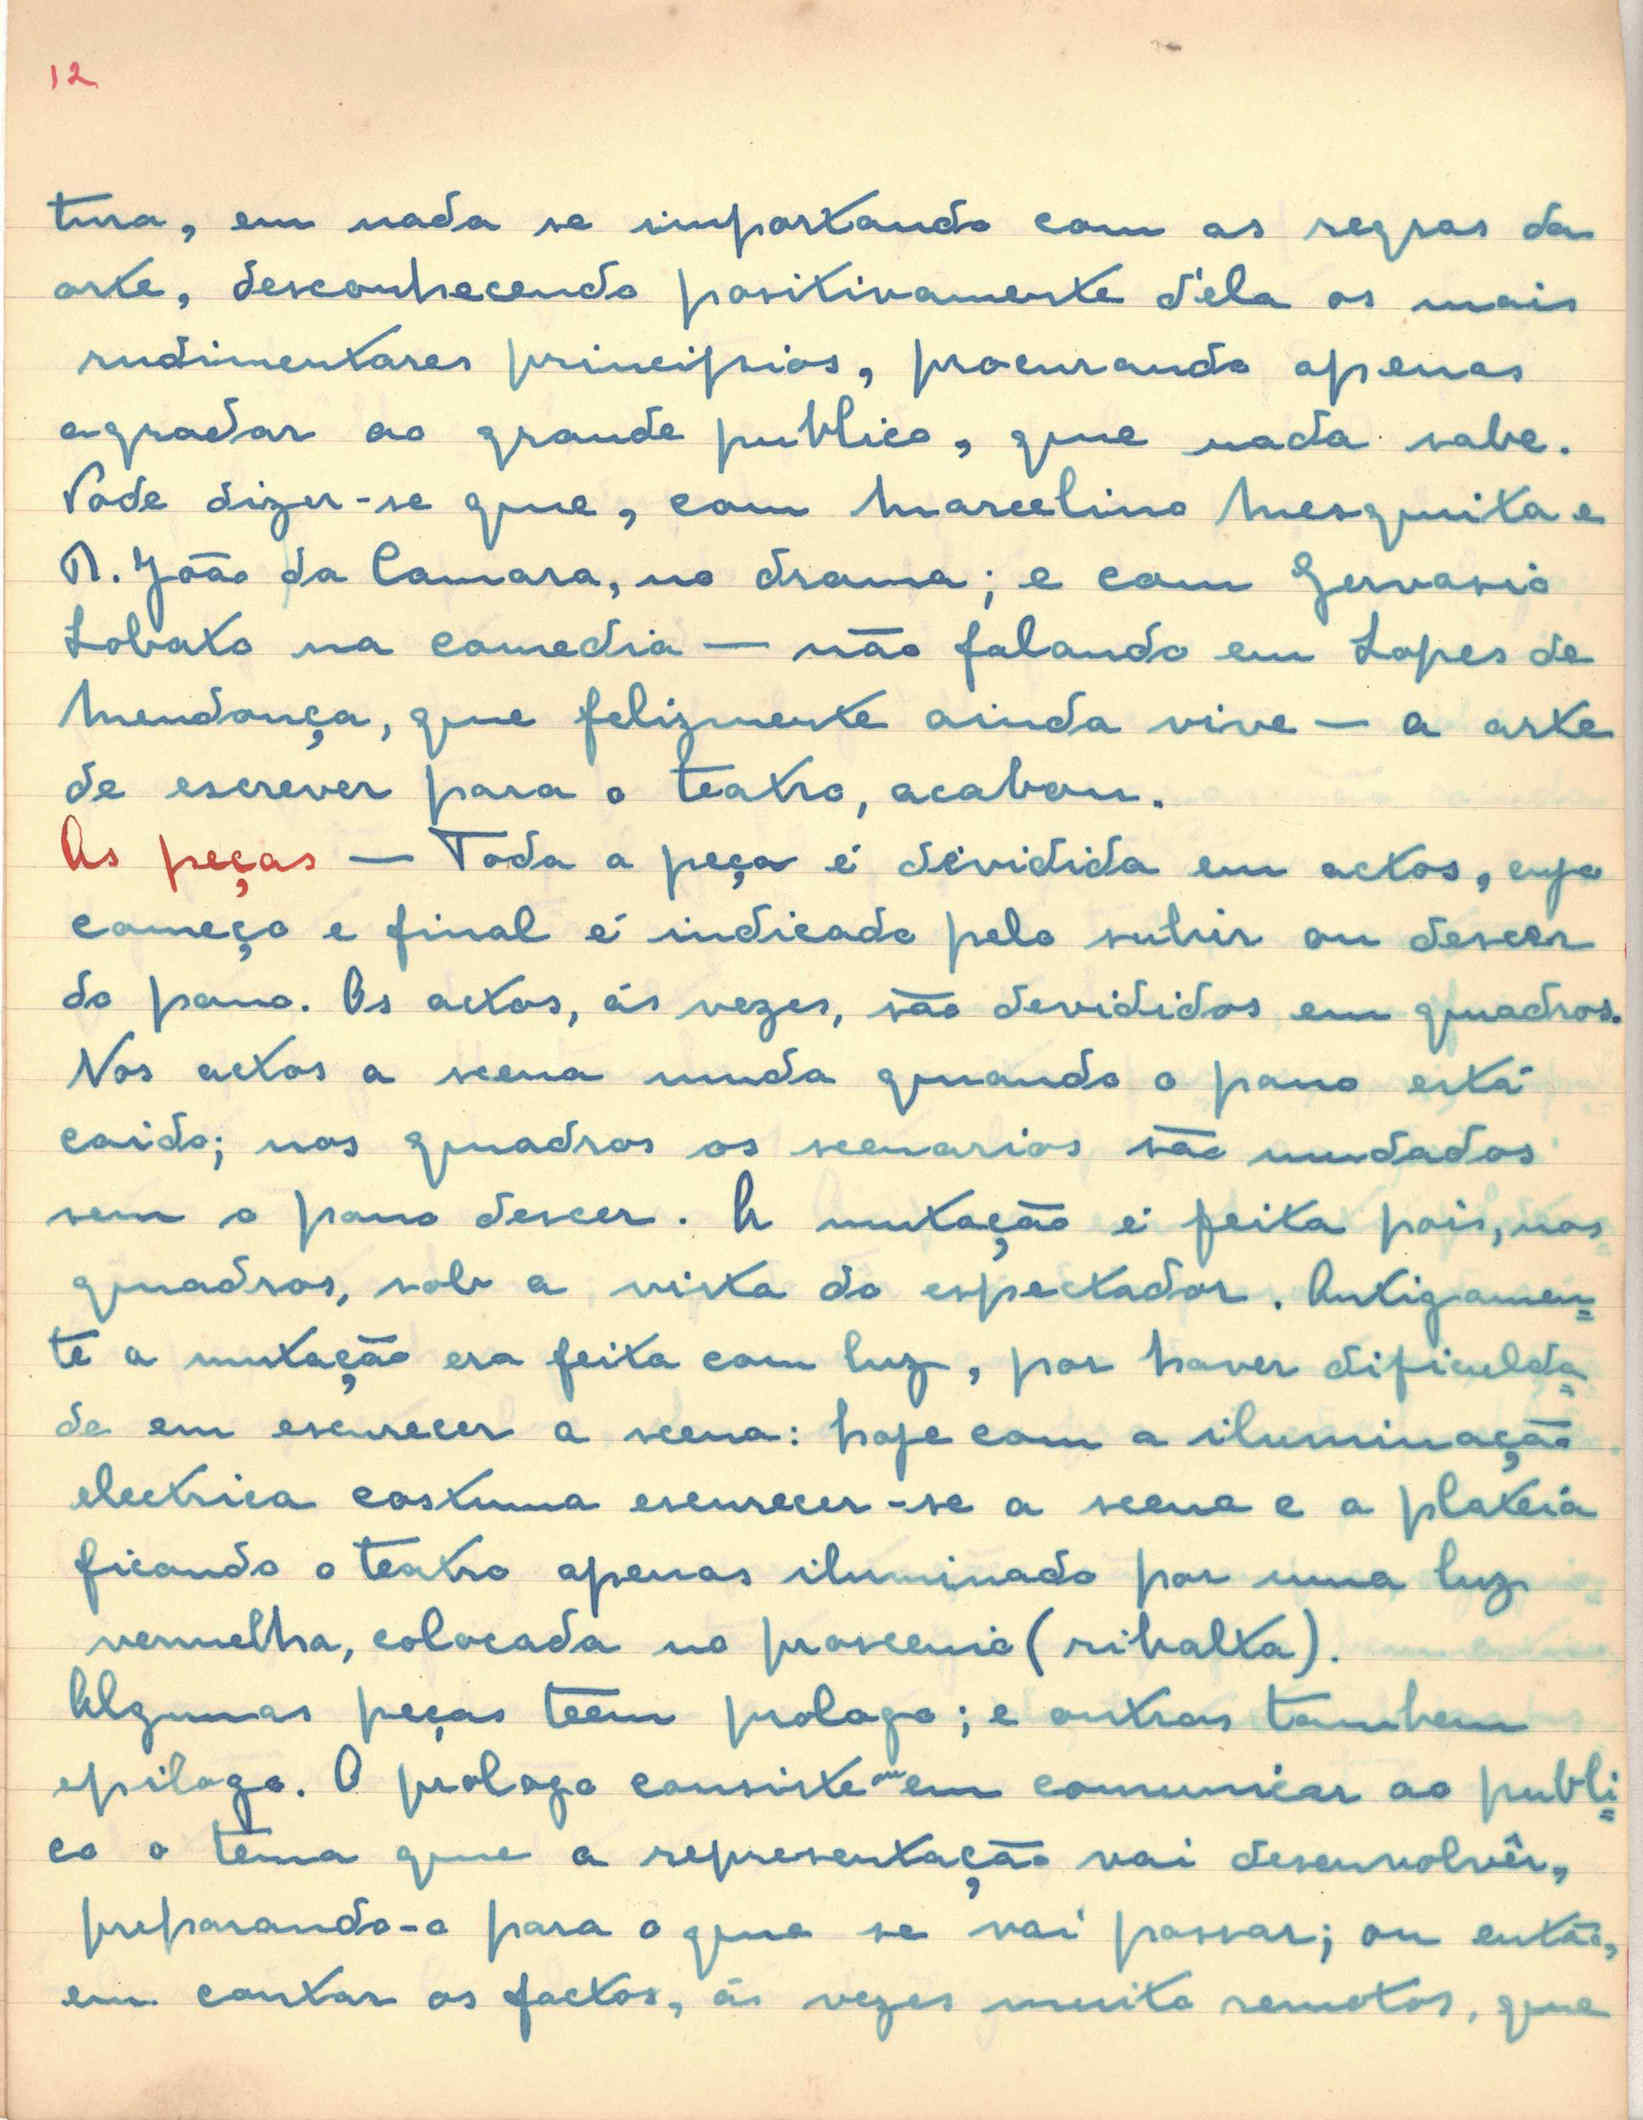 12
tura, em nada se importando com as regras da
arte, desconhecendo positivamente d'ela os mais
rudimentares principios, procurando apenas
agradar ao grande publico, que nada sabe.
Pode dizer-se que, com Marcelino Mesquita e
D. João da Camara, no drama; e com Gervasio
Lobato na comedia — não falando em Lopes de
Mendonça, que felizmente ainda vive — a arte
de escrever para o teatro, acabou.
As peças — Toda a peça é dividida em actos, cujo
começo e final é indicado pelo subir ou descer
do pano. Os actos, ás vezes, são devididos em quadros.
Nos actos a scena muda quando o pano está
caido; nos quadros os scenarios são mudados
sem o pano descer. A mutação é feita pois, nos
quadros, sob a vista do espectador. Antigamen=
te a mutação era feita com luz, por haver dificulda=
de em escurecer a scena: hoje com a iluminação
electrica costuma escurecer-se a scena e a plateia
ficando o teatro apenas iluminado por uma luz
vermelha, colocada no proscenio (ribalta).
Algumas peças teem prologo; e outras tambem
epilogo. O prologo consiste ou em comunicar ao publi=
co o tema que a representação vai desenvolvêr,
preparando-o para o que se vai passar; ou então,
em contar os factos, ás vezes muito remotos, que